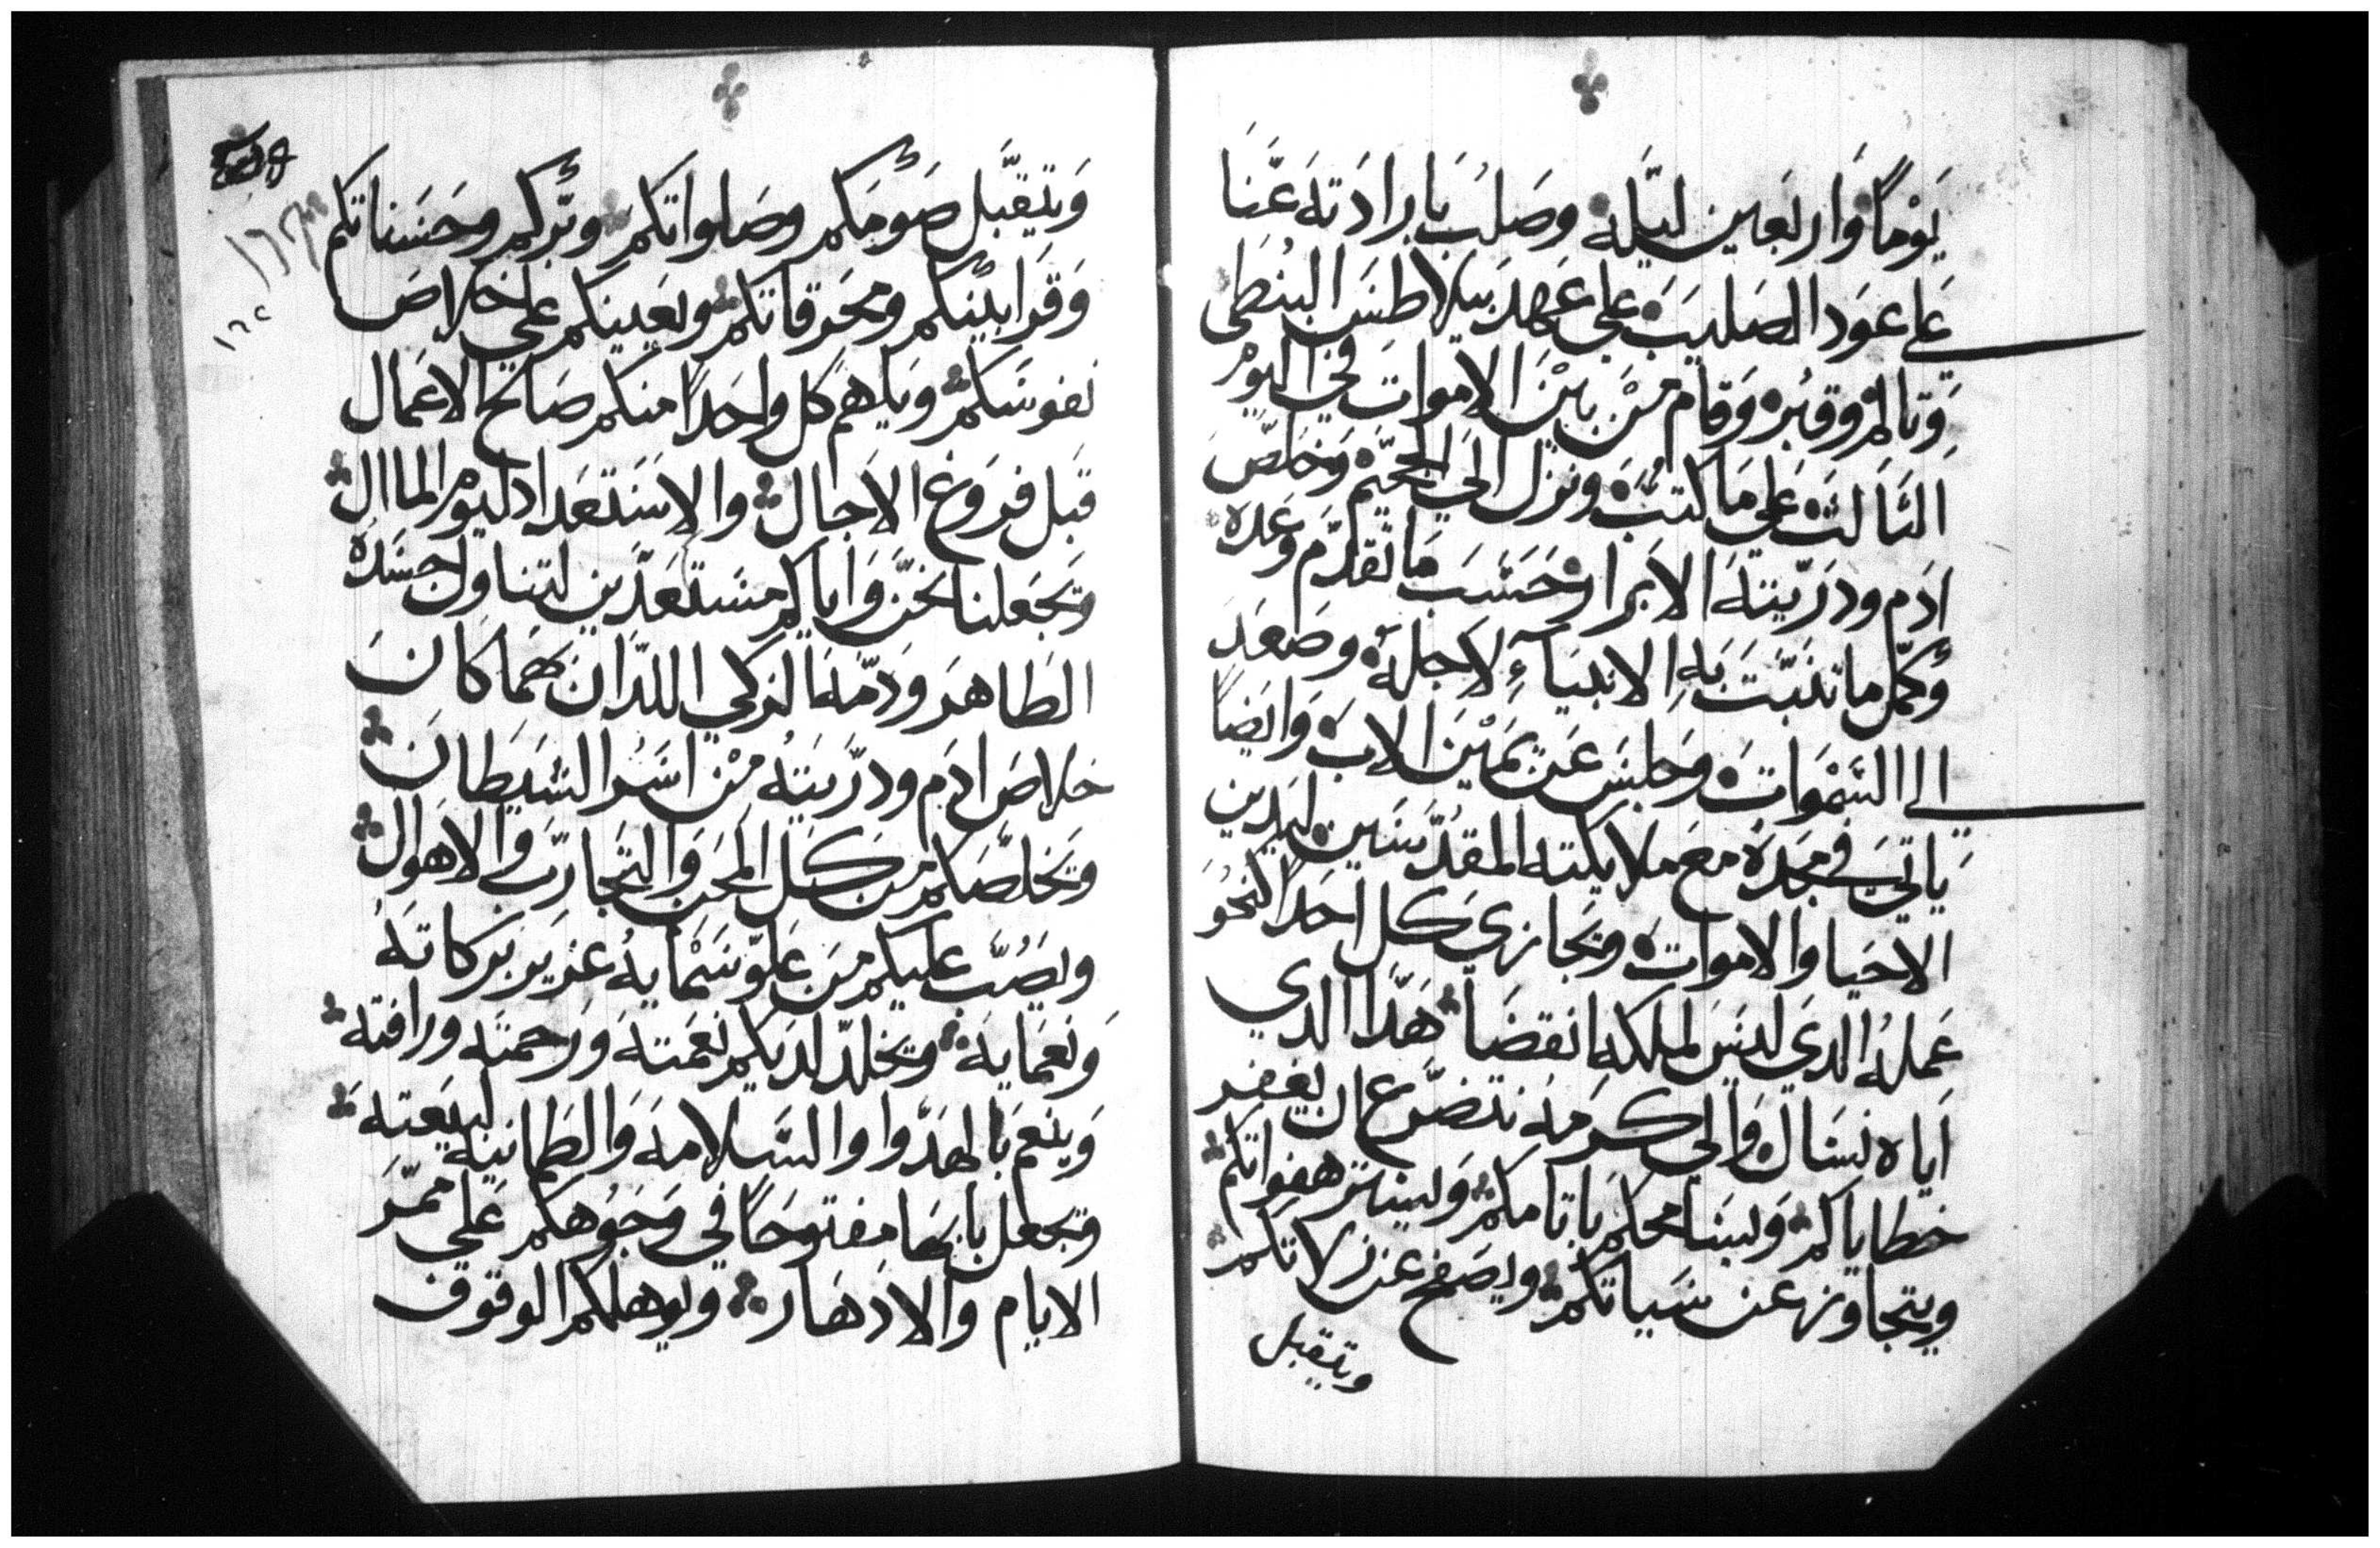 يَوْماً وَاربَعين ليَله وصَلبَ بارادَته عَنَّا
عَلى عوَد الصَليبَ على عَهد بيلاطسَ البُنطي
وَتالم وقبُره وَقام مَن بيَن الامواتَ في اليوَمْ
التالتَ على مَا كتبَ ونزل الي الجحَيم وَخلصَّ
ادَم ودرَيتهَ الابرار حَسَبَ ما تقَدم وَعَده
وُكمّل ما تنبتَ به الانبيآءِ لاجله وصَعدَ
الى السَموَاتَ وَجلسَ عَن يمَين الابَ وَايضاً
ياتي في مجَده مع ملايكته المقدَّسَين ليَدين
الاحيا والامواتَ ويجَازي كل احَداً كنحُوَ
عَملهُ الدي ليسَ لملكه انقضَا هَدا الدي
اَياه نسَال وَالي كرمَه نتضَرع ان يغفر
خطاياكم وَليسَامحكم باتامكم وَليستر هفواتكم
ويتجاوز عن سَياتكم ويصَفح عن زلاتكم
ويتقبل
وَيتقبَّل صَومَكم وصَلواتكم وبرُكم وحَسَناتكم
وَقرَابينُكم ومحَرقاتكم ويعَينكم على خلاصَ
نفوسَكم وَيلهم كل واحَداً منكم صَالح الاعَمال
قبَل فرَوغ الاَجال والاسَتعَداد ليوَم الماال
وَيجَعلنا نحَن وَاياكم مسَتعَدَّين لتناول جسَده
الطَاهرَ وَدمَّهَ الزكي اللدَان بهمَا كانَ
خلاصَ ادَم ودرَّيَتُه مَنْ اسَرُ الشيَطانَ
وَيخلصَّكم مَن كل المحَن وَالتجَاربَ وَالاهَوال
ويصَُبَّ عليكم مَن علوَّ سَمَايهُ غزير بَركاتهَُ
وَنعَمَايهَ وَيخلدّ لدَيكم نعَمتهَ وَرَحمتَه ورافتَه
وَينعَم بالهدَّوا والسَلامهَ وَالطَمانيه لبيَعته
وَيجعل بابهَا مفتوحَاً في وَجوُهكم عَلي ممَّرَ
الايام وَالادَهَار ويوهلكم الوقوف
١٦٥